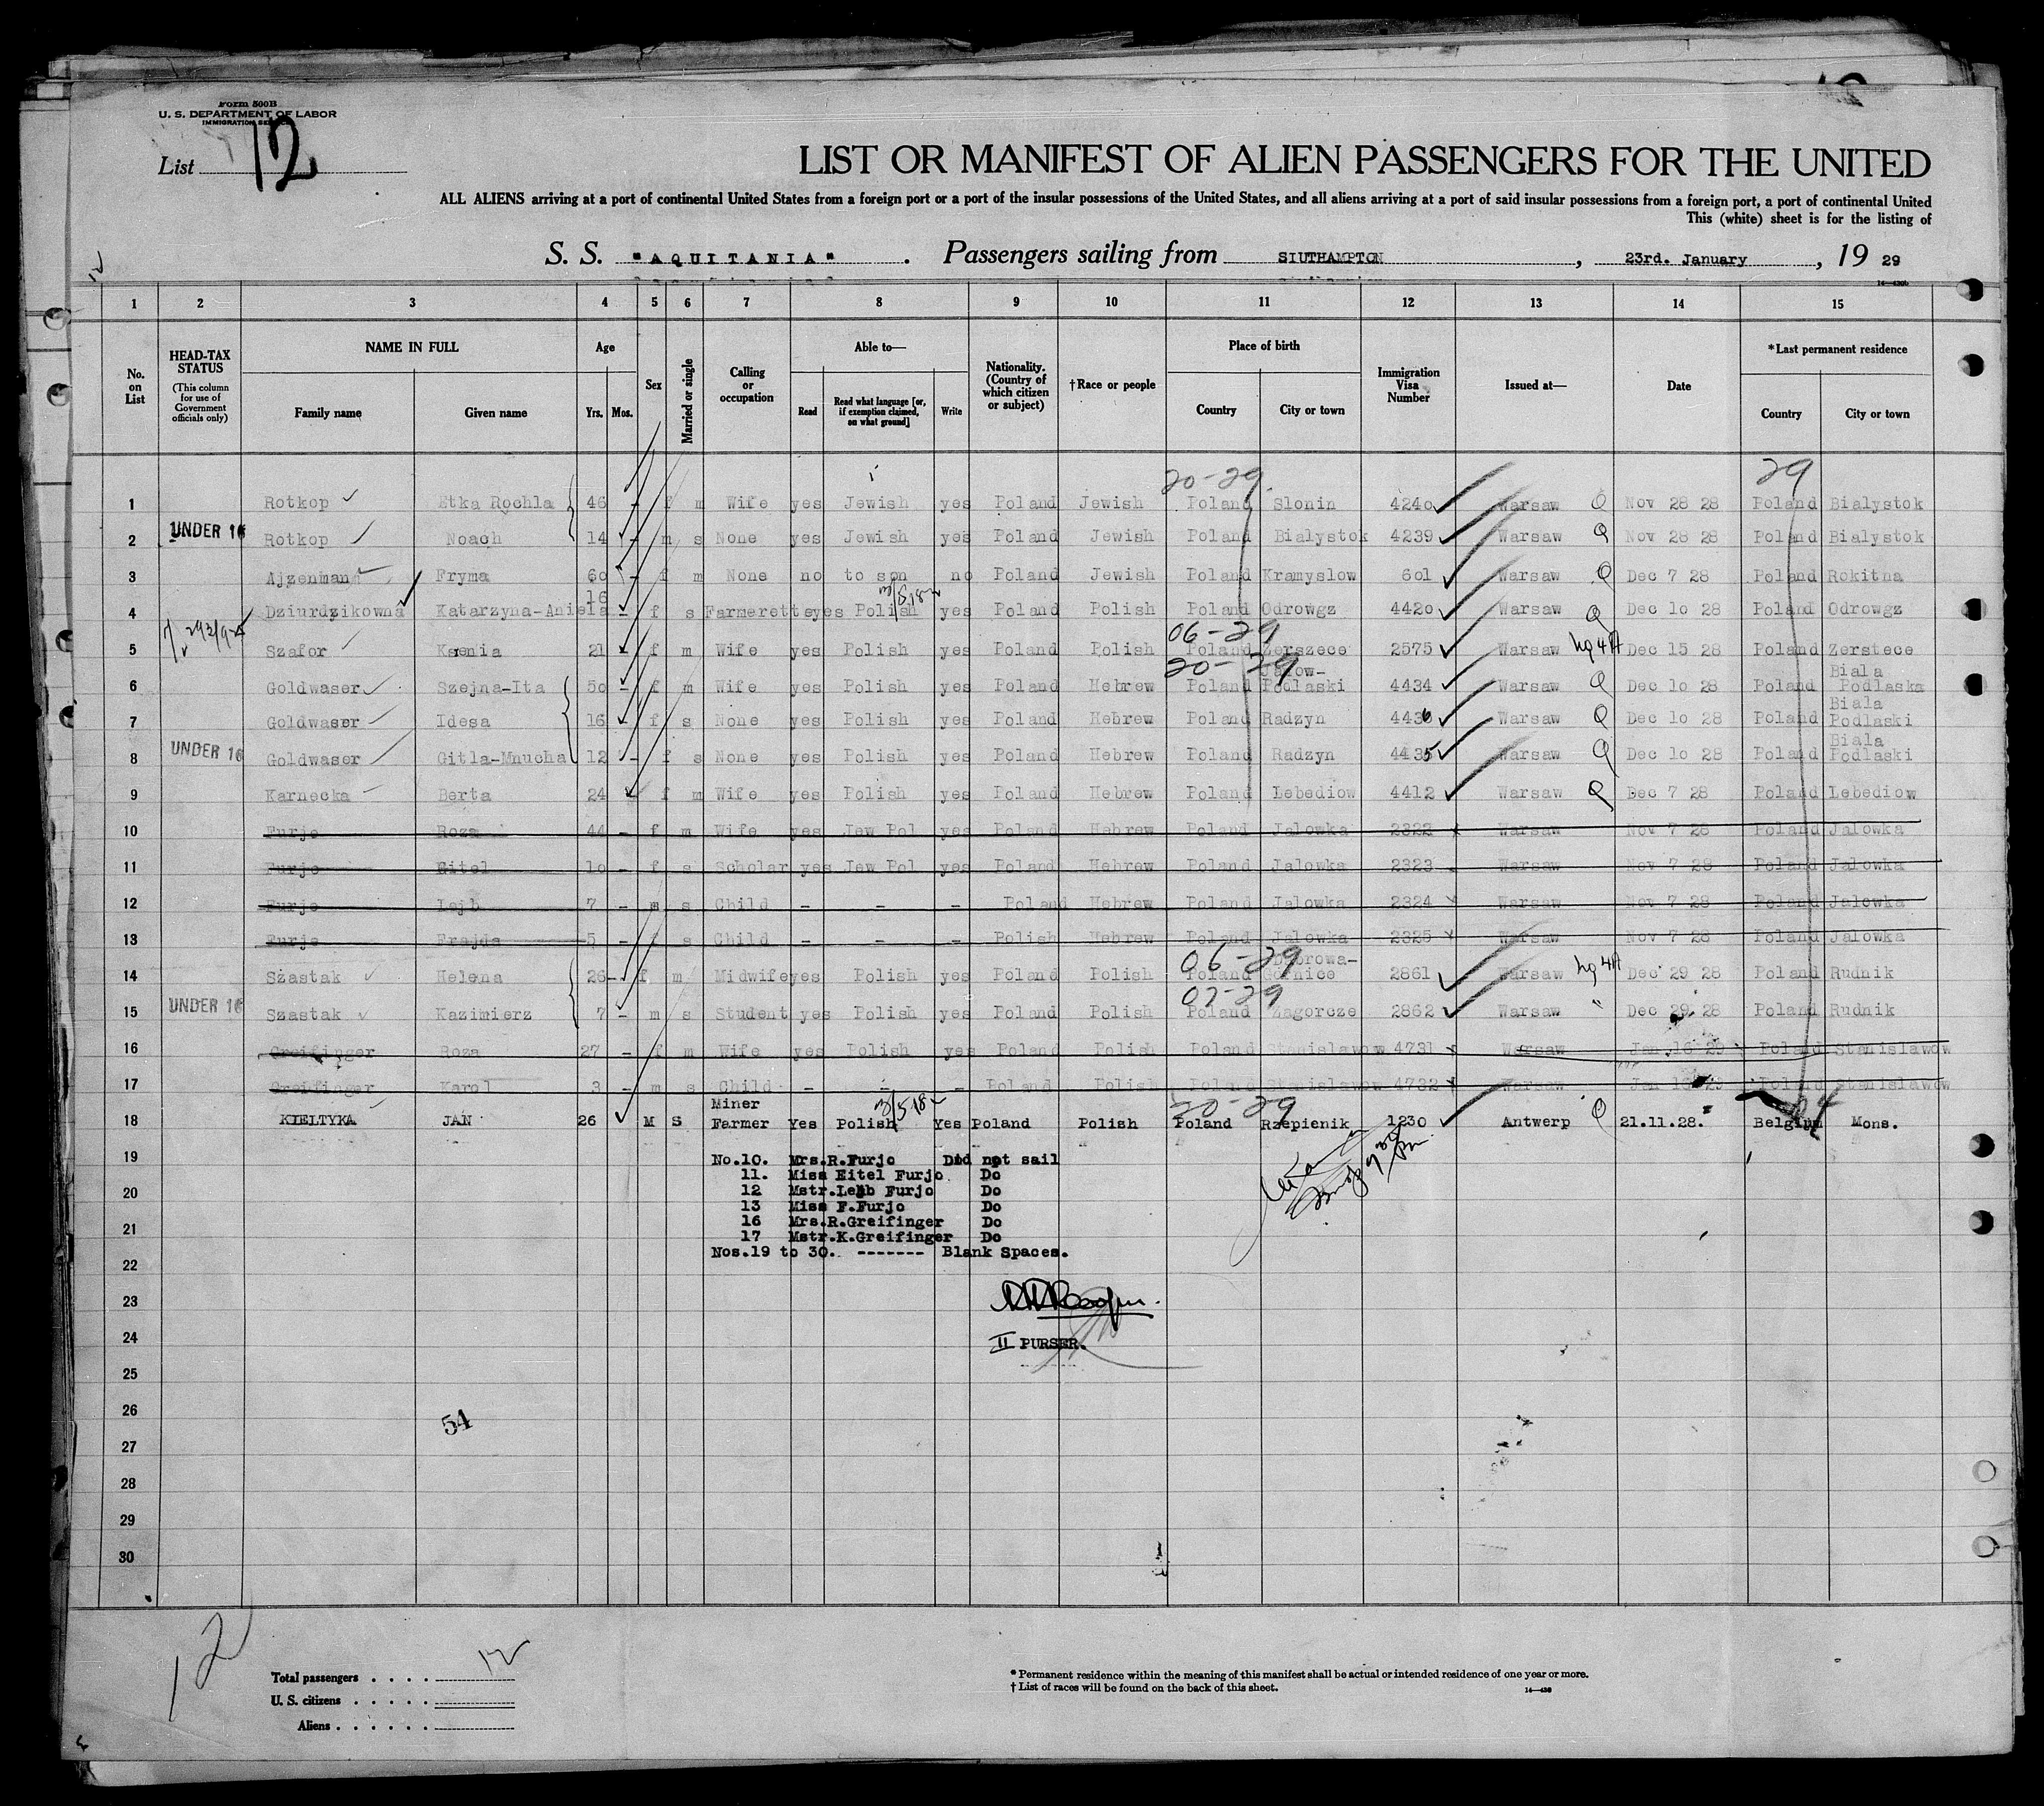 Form 500B
U. S. DEPARTMENT OF LABOR
IMMIGRATION SERVICE
List 12
LIST OR MANIFEST OF ALIEN PASSENGERS FOR THE UNITED
ALL ALIENS arriving at a port of continental United States from a foreign port or a port of the insular possessions of the United States, and all aliens arriving at a port of said insular possessions from a foreign port, a port of continental United
This (white) sheet is for the listing of
S. S. "AQUITANIA". Passengers sailing from SIUTHAMPTON, 23rd. January, 19 29
1 2 3 4 5 6 7 8 9 10 11 12 13 14 15
No. on List
HEAD-TAX STATUS (This column for use of Government officials only)
NAME IN FULL Family name Given name
Age Yrs. Mos.
Sex
Married or single
Calling or occupation
Able to— Read Read what language [or, if exemption claimed, on what ground] Write
Nationality. (Country of which citizen or subject)
†Race or people
Place of birth Country City or town
Immigration Visa Number
Issued at—
Date
*Last permanent residence Country City or town
20-29. 29
1 Rotkop Etka Rochla 46 - f m Wife yes Jewish yes Poland Jewish Poland Slonin 4240 Warsaw Nov 28 28 Poland Bialystok
2 UNDER 16 Rotkop Noach 14 - m s None yes Jewish yes Poland Jewish Poland Bialystok 4239 Warsaw Nov 28 28 Poland Bialystok
3 Ajzenman Fryma 60 - f m None no to son no Poland Jewish Poland Kramyslow 601 Warsaw Dec 7 28 Poland Rokitna
4 Dziurdzikowna Katarzyna-Aniela 16 - f s Farmerette yes Polish yes Poland Polish Poland Odrowgz 4420 Warsaw Dec 10 28 Poland Odrowgz
06-29
5 Szafor Ksenia 21 - f m Wife yes Polish yes Poland Polish Poland Zerszece 2575 Warsaw Dec 15 28 Poland Zerstece
20-29
6 Goldwaser Szejna-Ita 50 - f m Wife yes Polish yes Poland Hebrew Poland Podlaski 4434 Warsaw Dec 10 28 Poland Biala Podlaska
7 Goldwaser Idesa 16 - f s None yes Polish yes Poland Hebrew Poland Radzyn 4436 Warsaw Dec 10 28 Poland Biala Podlaski
8 UNDER 16 Goldwaser Gitla-Mnucha 12 - f s None yes Polish yes Poland Hebrew Poland Radzyn 4435 Warsaw Dec 10 28 Poland Biala Podlaski
9 Karnecka Berta 24 f m Wife yes Polish yes Poland Hebrew Poland Lebediow 4412 Warsaw Dec 7 28 Poland Lebediow
10 Furje Roza 44 - f m Wife yes Jew Pol yes Poland Hebrew Poland Jalowka 2322 Warsaw Nov 7 28 Poland Jalowka
11 Furje Eitel 10 - f s Scholar yes Jew Pol yes Poland Hebrew Poland Jalowka 2323 Warsaw Nov 7 28 Poland Jalowka
12 Furje Lejb 7 - m s Child - - - Poland Hebrew Poland Jalowka 2324 Warsaw Nov 7 28 Poland Jalowka
13 Furje Frajda 5 - f s Child - - - Polish Hebrew Poland Jalowka 2325 Warsaw Nov 7 28 Poland Jalowka
06-29
14 Szastak Helena 26 - f m Midwife yes Polish yes Poland Polish Poland Dobrowa-Gornice 2861 Warsaw Dec 29 28 Poland Rudnik
07-29
15 UNDER 16 Szastak Kazimierz 7 - m s Student yes Polish yes Poland Polish Poland Zagorcze 2862 Warsaw Dec 29 28 Poland Rudnik
16 Greifinger Roza 27 - f m Wife yes Polish yes Poland Polish Poland Stanislawow 4731 Warsaw Jan 16 29 Poland Stanislawow
17 Greifinger Karol 3 - m s Child - - - Poland Polish Poland Stanislawow 4732 Warsaw Jan 16 29 Poland Stanislawow
20-29
18 KIELTYKA JAN 26 M S Miner Farmer Yes Polish Yes Poland Polish Poland Rzepienik 1230 Antwerp 21.11.28. Belgium Mons.
19
No.10. Mrs.R.Furjo Did not sail
11. Miss Eitel Furjo Do
20
12 Mstr.Lejb Furjo Do
13 Miss F.Furjo Do
21
16 Mrs.R.Greifinger Do
17 Mstr.K.Greifinger Do
Nos.19 to 30. ------- Blank Spaces.
22
23
24
II PURSER.
25
26
54
27
28
29
30
12
Total passengers . . . . 12
U. S. citizens . . . . .
Aliens . . . . . .
* Permanent residence within the meaning of this manifest shall be actual or intended residence of one year or more.
† List of races will be found on the back of this sheet.
14—430